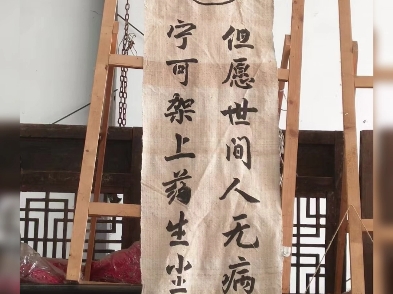 但愿世间人无病
宁可架上药生尘